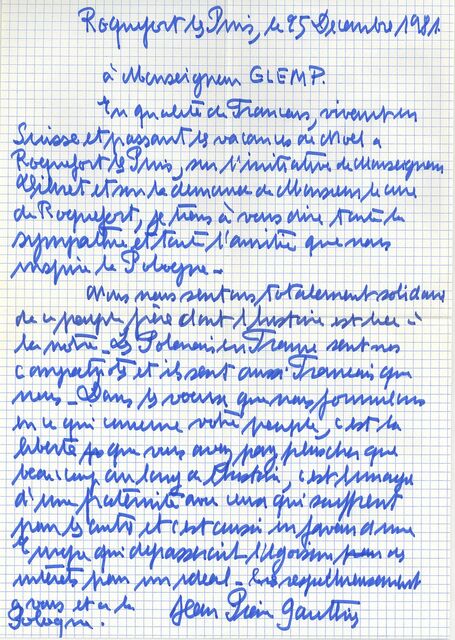 Roquefort les Pins, le 25 Décembre 1981.
à Monseigneur GLEMP.
En qualité de Francais, vivant en
Suisse et passant les vacances de Noël a
Roquefort les Pins, sur l'initiative de Monseigneur
et sur la demande de Monsieur le cure
de Roquefort, je tiens à vous dire toute la
sympathie et toute l'amitié que nous
inspire la Pologne -
Nous nous sentons totalement solidaire
de ce peuple frère dont l'histoire est liée à
la notre - Les Polonais en France sont nos
compatriotes et ils sont aussi Francais que
nous - Dans les voeux que nous formulons
en ce qui concerne votre peuple, c'est la
liberté que vous avez payé plus cher que
beaucoup au long de l'histoire, c'est l'image
d'une fraternité avec ceux qui souffrent
pour les autres et c'est aussi en faveur d'une
Europe qui dépasserait l'égoïsme des
intérêts pour un ideal - respectueusement
a vous et a la
Pologne. Jean Pierre Gauthier